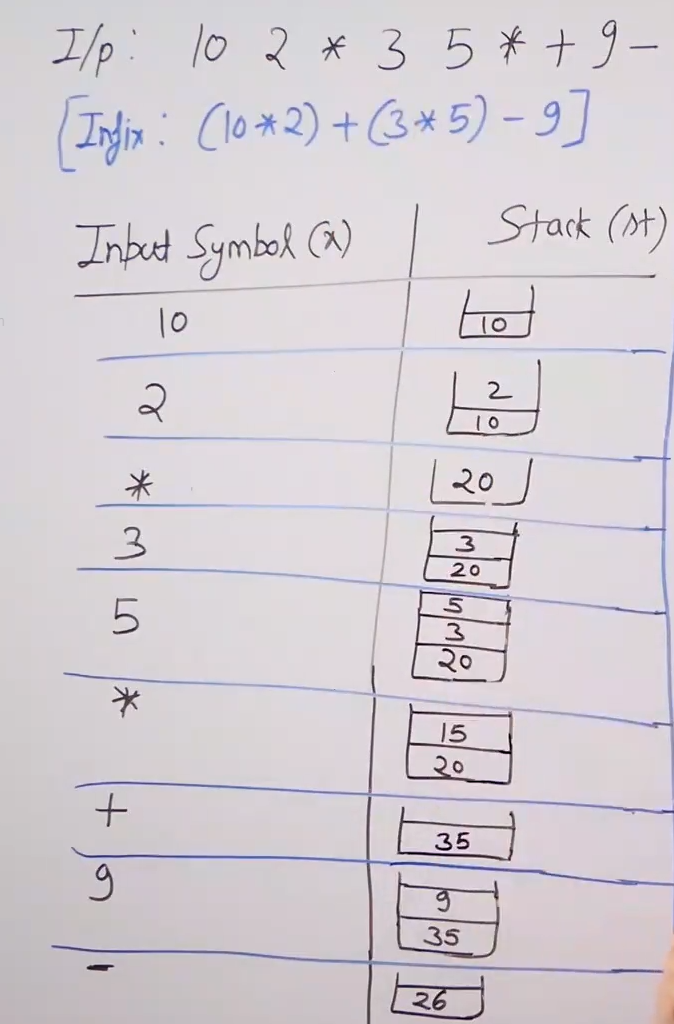 I/p: 10 2 * 3 5 * + 9 -
[Infix: (10*2) + (3*5) - 9]
Input Symbol (x) Stack (st)
10 10
2 2
10
* 20
3 3
20
5 5
3
20
* 15
20
+ 35
9 9
35
- 26